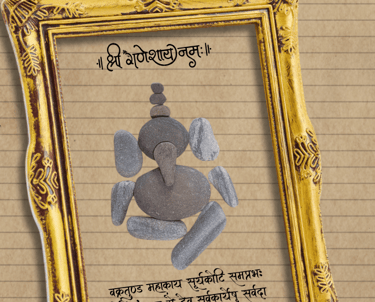 ॥ श्री गणेशाय नमः ॥
वक्रतुण्ड महाकाय सुर्यकोटि समप्रभः
देव सर्वकार्येषु सर्वदा